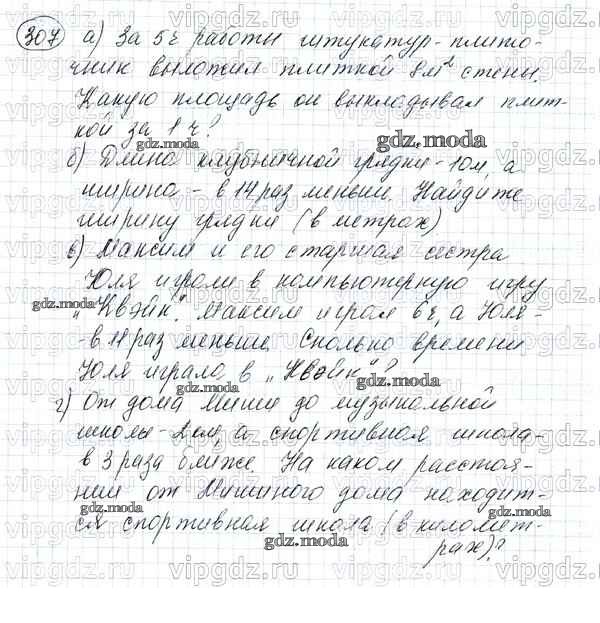 307 а) За 5 ч работы штукатур-плиточ-
чник выложил плиткой 8 м² стены.
Какую площадь он выкладывал плит-
кой за 1 ч?
б) Длина клубничной грядки - 10 м, а
ширина - в 14 раз меньше. Найдите
ширину грядки (в метрах)
в) Максим и его старшая сестра
Юля играли в компьютерную игру
„Квэйк". Максим играл 6 ч, а Юля -
- в 11 раз меньше. Сколько времени
Юля играла в „Квэйк"?
г) От дома Миши до музыкальной
школы - 2 км, а спортивная школа -
в 3 раза ближе. На каком расстоя-
нии от Мишиного дома находит-
ся спортивная школа (в километ-
рах)?
gdz.moda
gdz.moda
gdz.moda
gdz.moda
gdz.moda
gdz.moda
gdz.moda
gdz.moda
vipgdz.ru